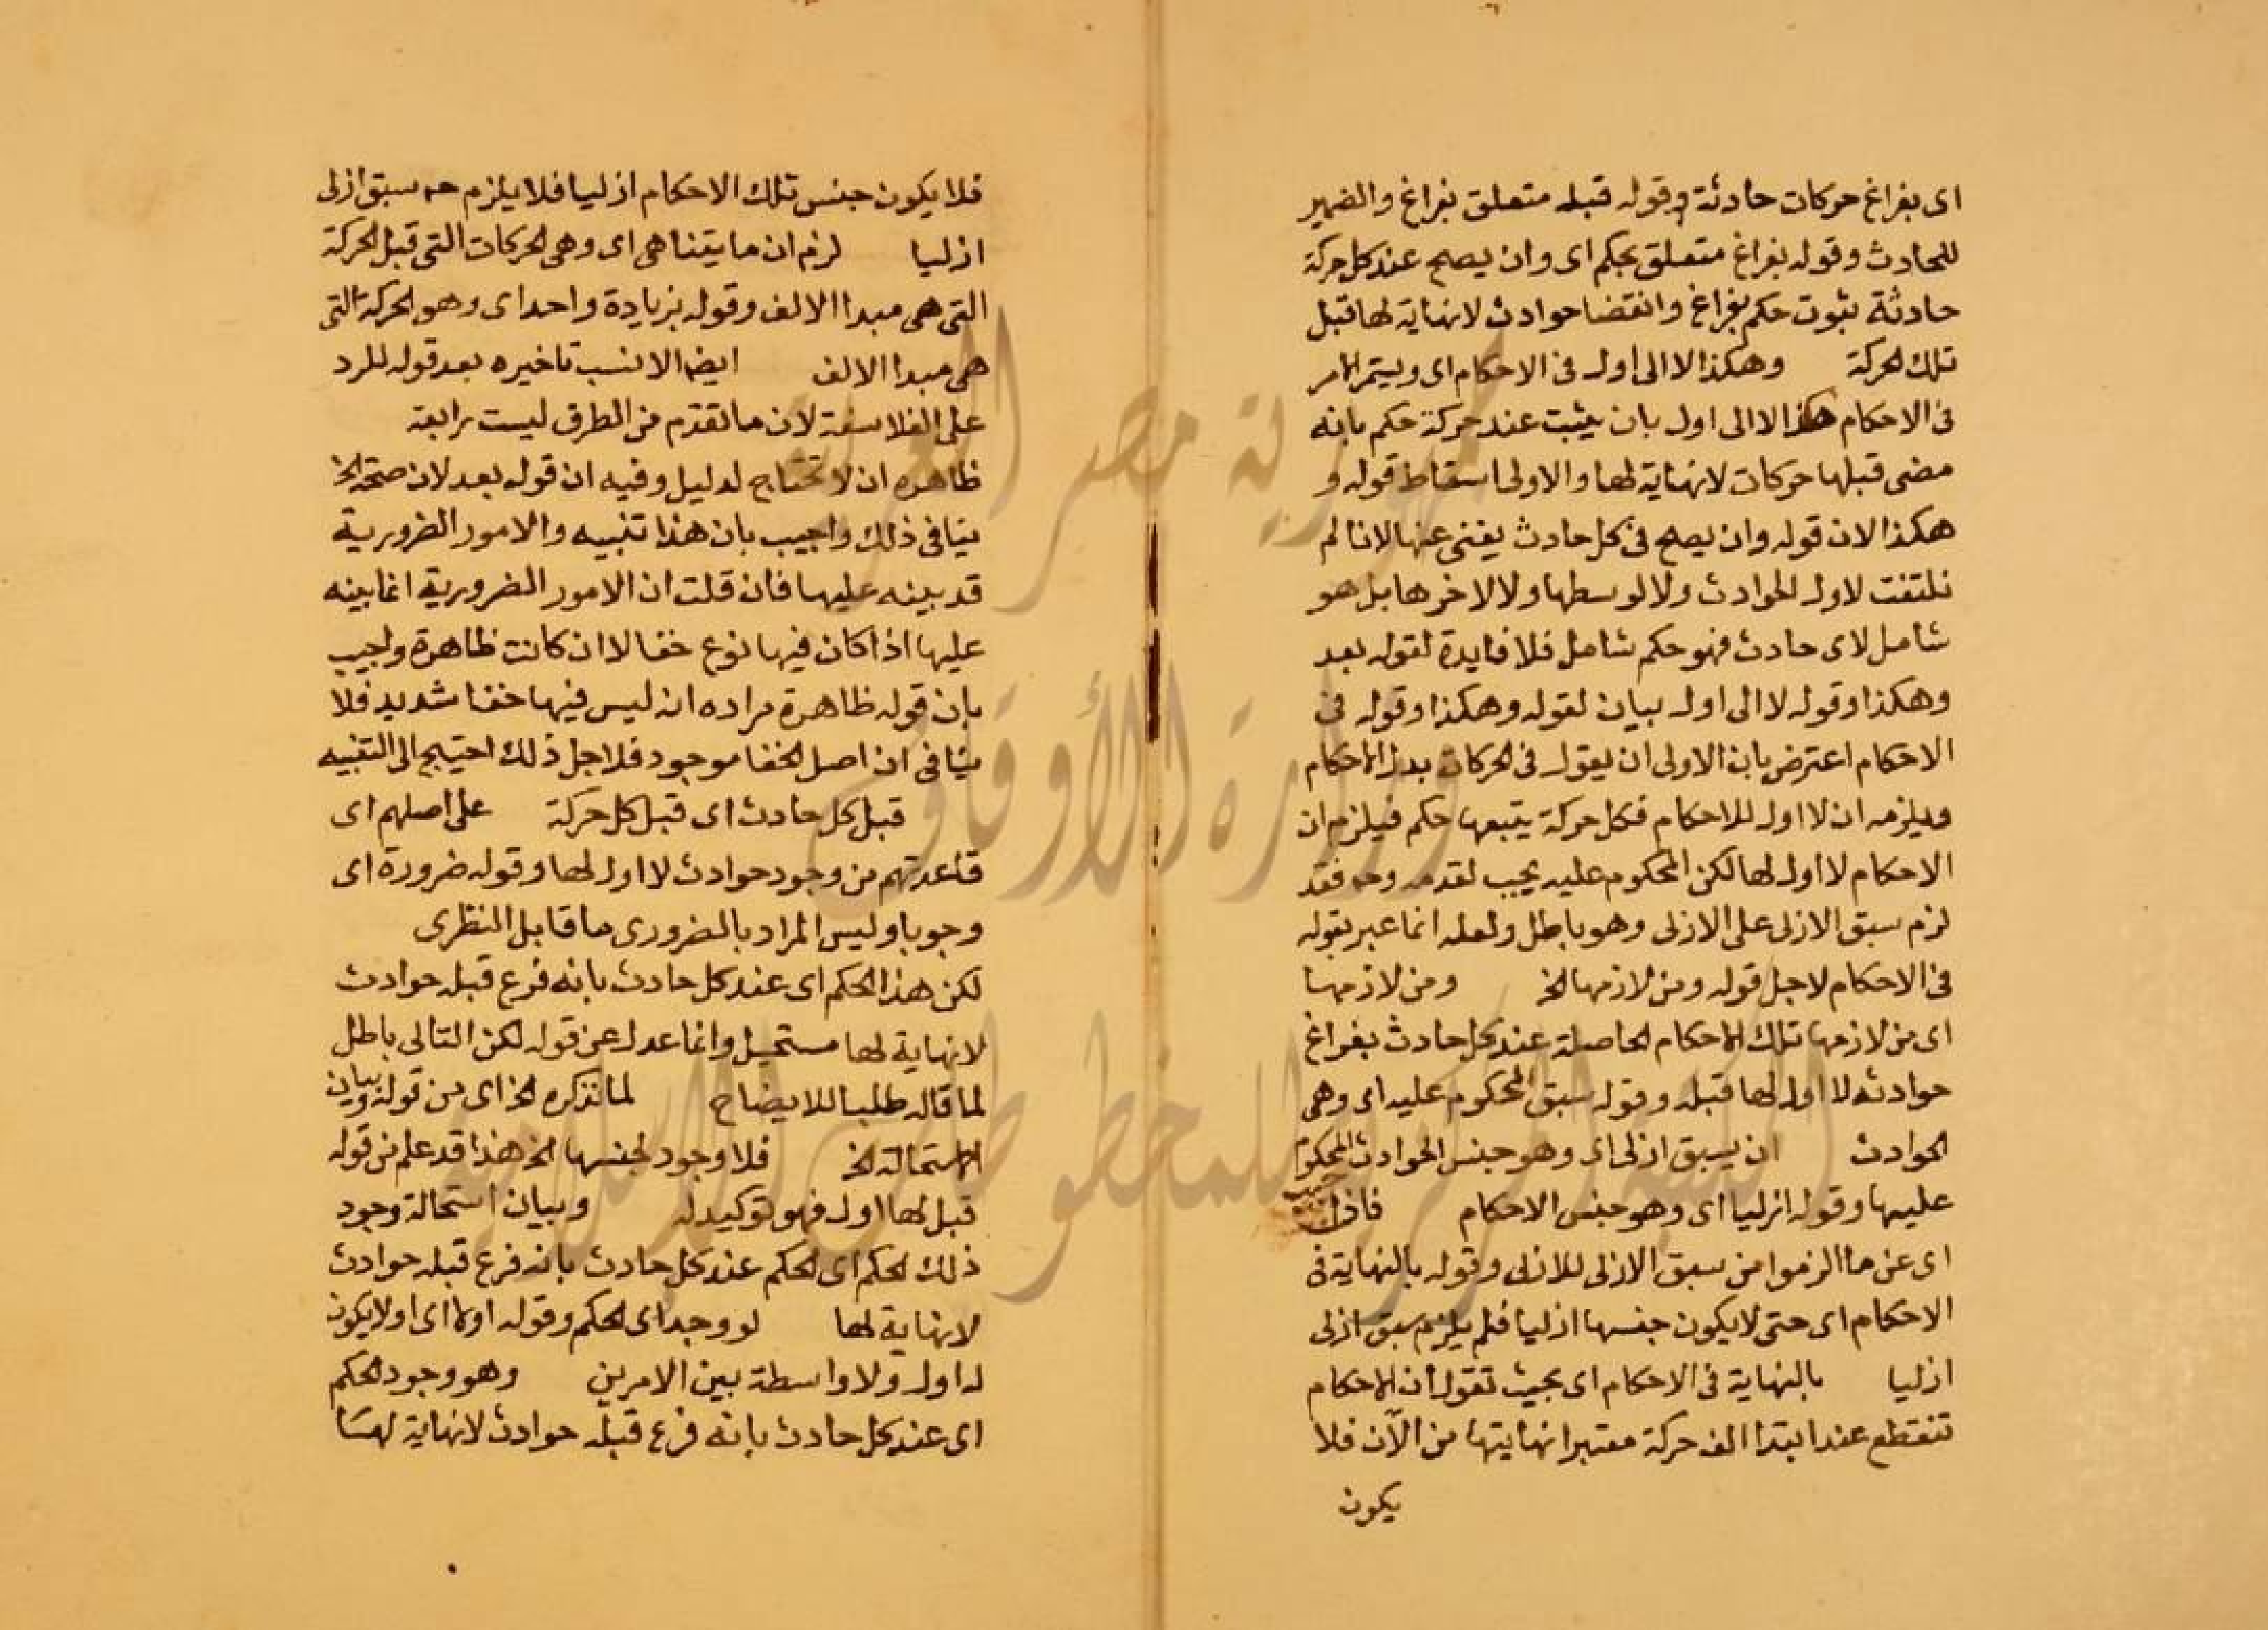 اى بفراغ حركات حادثة وقوله قبله متعلق بفراغ والضمير
للحادث وقوله بفراغ متعلق بحكم اى وان يصح عند كل حركة
حادثة ثبوت حكم بفراغ وانقضا حوادث لانهاية لها قبل
تلك الحركة وهكذا لا الى اول فى الاحكام اى ويستمر الامر
فى الاحكام هكذا لا الى اول بان يثبت عند حركة حكم بانه
مضى قبلها حركات لانهاية لها والاولى اسقاط قوله و
هكذا لان قوله وان يصح فى كل حادث يغنى عنها لانا لم
نلتفت لاول الحوادث ولا لوسطها ولا لاخرها بل هو
شامل لاى حادث فهو حكم شامل فلا فايدة لقوله بعد
وهكذا وقوله لا الى اول بيان لقوله وهكذا وقوله فى
الاحكام اعترض بان الاولى ان يقول فى الحركات بدل الاحكام
ويلزمه ان لا اول للاحكام فكل حركة يتبعها حكم فيلزم ان
الاحكام لا اول لها لكن المحكوم عليه يجب تقدمه وحه فقد
لزم سبق الازلى على الازلى وهو باطل ولعله انما عبر بقوله
فى الاحكام لاجل قوله ومن لازمها الخ ومن لازمها
اى من لازمها تلك الاحكام الحاصلة عند كل حادث بفراغ
حوادث لا اول لها قبله وقوله سبق المحكوم عليه اى وهى
الحوادث ان يسبق ازلى اى وهو جنس الحوادث المحكوم
عليها وقوله ازليا اى وهو جنس الاحكام فان اجيب
اى عن ما الزموا من سبق الازلى للازلى وقوله بالنهاية فى
الاحكام اى حتى لا يكون جنسها ازليا فلم يلزم سبق ازلى
ازليا بالنهاية فى الاحكام اى بحيث تقول ان الاحكام
تنقطع عند ابتدا الف حركة معتبرا نهايتها من الآن فلا
يكون
فلا يكون جنس تلك الاحكام ازليا فلا يلزم حه سبق ازلى
ازليا لزم ان ما يتناهى اى وهى الحركات التى قبل الحركة
التى هى مبدا الالف وقوله بزيادة واحد اى وهو الحركة التى
هى مبدا الالف ايضا الانسب تاخيره بعد قوله للرد
على الفلاسفة لان ما تقدم من الطرق ليست رابعة
ظاهره ان لا تحتاج لدليل وفيه ان قوله بعد لان صحة الخ
ينافى ذلك واجيب بان هذا تنبيه والامور الضرورية
قد ينبه عليها فان قلت ان الامور الضرورية انما ينبه
عليها اذا كان فيها نوع خفا لا ان كانت ظاهرة واجيب
بان قوله ظاهرة مراده انه ليس فيها خفا شديد فلا
ينافى ان اصل الخفا موجود فلاجل ذلك احتيج الى التنبيه
قبل كل حادث اى قبل كل حركة على اصلهم اى
قاعدتهم من وجود حوادث لا اول لها وقوله ضرورة اى
وجوبا وليس المراد بالضرورى ما قابل النظرى
لكن هذا الحكم اى عند كل حادث بانه فرغ قبله حوادث
لانهاية لها مستحيل وانما عدل عن قوله لكن التالى باطل
لما قاله طلبا للايضاح لما نذكره الخ اى من قوله وبيان
الاستحالة الخ فلا وجود لجنسها الخ هذا قد علم من قوله
قبل لها اول فهو توكيد له وبيان استحالة وجود
ذلك الحكم اى الحكم عند كل حادث بانه فرغ قبله حوادث
لانهاية لها لو وجد اى الحكم وقوله اولا اى او لا يكون
له اول ولا واسطة بين الامرين وهو وجود الحكم
اى عند كل حادث بانه فرغ قبله حوادث لانهاية لها